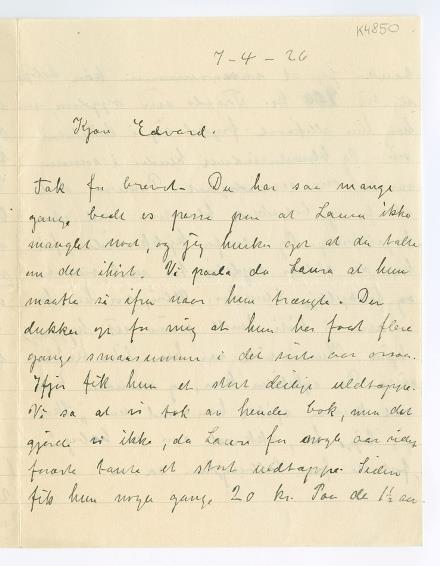 K4850
7-4-26
Kjære Edvard.
Tak for brevet. Du har saa mange
gange bedt os passe paa at Laura ikke
manglet noet, og jeg husker godt at du talte
om det ihöst. Vi paala da Laura at hun
maatte si ifra naar hun trængte. Der
dukker op for mig at hun har faat flere
gange smaasummer i det siste aar ogsaa.
Ifjor fik hun et stort deilig uldtæppe.
Vi sa at vi tok av hendes bok, men det
gjorde vi ikke, da Laura for nogle aar siden
forærte tante et stort uldtæppe. Siden
fik hun nogen gange 20 kr. Paa de 1½ aar